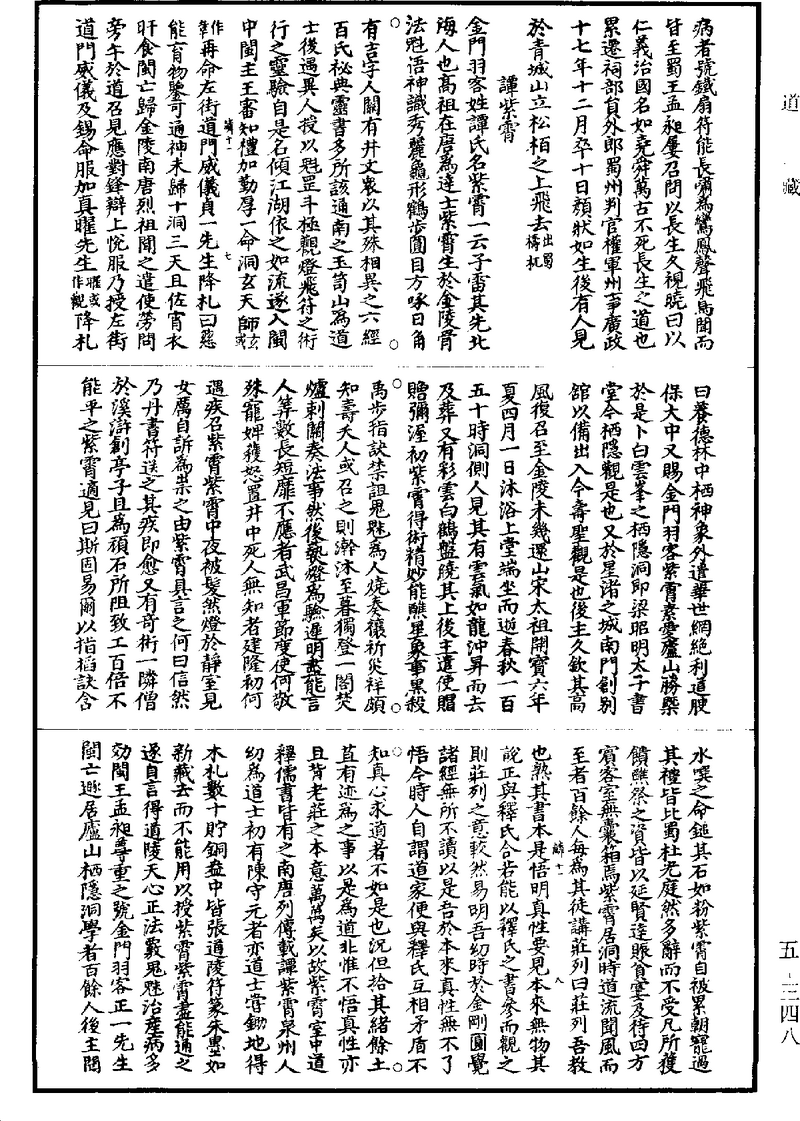 道藏
病者號鐵扇符能長嘯為鸞鳳聲飛鳥聞而
皆至蜀王孟昶屢召問以長生久視曉曰以
仁義治國名如堯舜萬古不死長生之道也
累遷祠部貟外郎蜀州判官權軍州事廣政
十七年十二月卒十日顏狀如生後有人見
於青城山立松栢之上飛去出蜀檮杌
譚紫霄
金門羽客姓譚氏名紫霄一云子雷其先北
海人也高祖在唐為達士紫霄生於金陵骨
法魁梧神識秀麗龜形鶴步圓目方喙日角
有吉字人關有井文衆以其殊相異之六經
百氏祕典靈書多所該通南之玉笥山為道
士後遇異人授以魁罡斗極觀燈飛符之術
行之靈驗自是名傾江湖依之如流遂入閩
中閩主王審知禮加勤厚一命洞玄天師玄或
作眞再命左街道門威儀貞一先生降札曰慈
能育物鑒可通神未歸十洞三天且佐宵衣
旰食閩亡歸金陵南唐烈祖聞之遣使勞問
旁午於道召見應對鋒辯上悅服乃授左街
道門威儀及錫命服加真曜先生曜或作觀降札
曰養德林中栖神象外遺華世網絕利道腴
保大中又賜金門羽客紫霄素愛廬山勝槩
於是卜白雲峯之栖隱洞即梁昭明太子書
堂今栖隱觀是也又於星渚之城南門創別
舘以備出入今壽聖觀是也後主久欽其高
風復召至金陵未幾還山宋太祖開寶六年
夏四月一日沐浴上堂端坐而逝春秋一百
五十時洞側人見其有雲氣如龍沖昇而去
及葬又有彩雲白鶴盤旋其上後主遣使賵
贈彌渥初紫霄得術精妙能醮星象事黑殺
禹步指訣禁詛鬼魅為人燒奏禳祈災祥頗
知壽夭人或召之則澣沐至暮獨登一閣焚
爐刺關奏法事然後爇燈為驗遲明盡能言
人筭數長短靡不應者武昌軍節度使何敬
殊寵婢獲怒置井中死人無知者建隆初何
遇疾召紫霄紫霄中夜被髮然燈於靜室見
女厲自訴為祟之由紫霄具言之何曰信然
乃丹書符送之其疾即愈又有奇術一隣僧
於溪滸創亭子且為頑石所阻致工百倍不
能平之紫霄適見曰斯固易爾以指搯訣含
水噀之命鎚其石如粉紫霄自被累朝寵遇
其禮皆比蜀杜光庭然多辭而不受凡所獲
饋醮祭之資皆以延賢達賑貧窶及待四方
賓客室無囊箱焉紫霄居洞時道流聞風而
至者百餘人每為其徒講莊列曰莊列吾教
也然其書本是悟明真性要見本來無物其
說正與釋氏合若能以釋氏之書參而觀之
則莊列之意較然易明吾幼時於金剛圓覺
諸經無所不讀以是吾於本來真性無不了
悟今時人自謂道家便與釋氏互相矛盾不
知真心求道者不如是也況但拾其緒餘土
苴有迹為之事以是為道非惟不悟真性亦
且背老莊之本意萬萬矣以故紫霄室中道
釋儒書皆有之南唐列傳載譚紫霄泉州人
幼為道士初有陳守元者亦道士嘗鋤地得
木札數十貯銅盎中皆張道陵符篆朱墨如
新藏去而不能用以授紫霄紫霄盡能通之
遂自言得道陵天心正法劾鬼魅治瘧病多
効閩王孟昶尊重之號金門羽客正一先生
閩亡遯居廬山栖隱洞學者百餘人後主聞
五－三四八